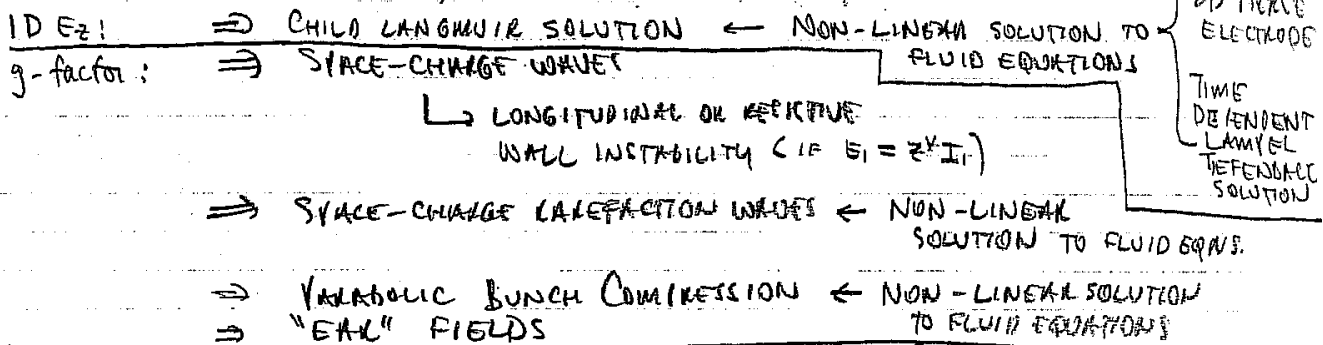 1D Ez: ⇒ CHILD LANGMUIR SOLUTION ← NON-LINEAR SOLUTION TO FLUID EQUATIONS
ELECTRODE
TIME DEPENDENT LAMPEL TIEFENBACK SOLUTION
g-factor: ⇒ SPACE-CHARGE WAVES
↳ LONGITUDINAL OR RESISTIVE
WALL INSTABILITY (IF E₁ = Z* I₁)
⇒ SPACE-CHARGE RAREFACTION WAVES ← NON-LINEAR
SOLUTION TO FLUID EQNS.
⇒ PARABOLIC BUNCH COMPRESSION ← NON-LINEAR SOLUTION
⇒ "EAR" FIELDS TO FLUID EQUATIONS